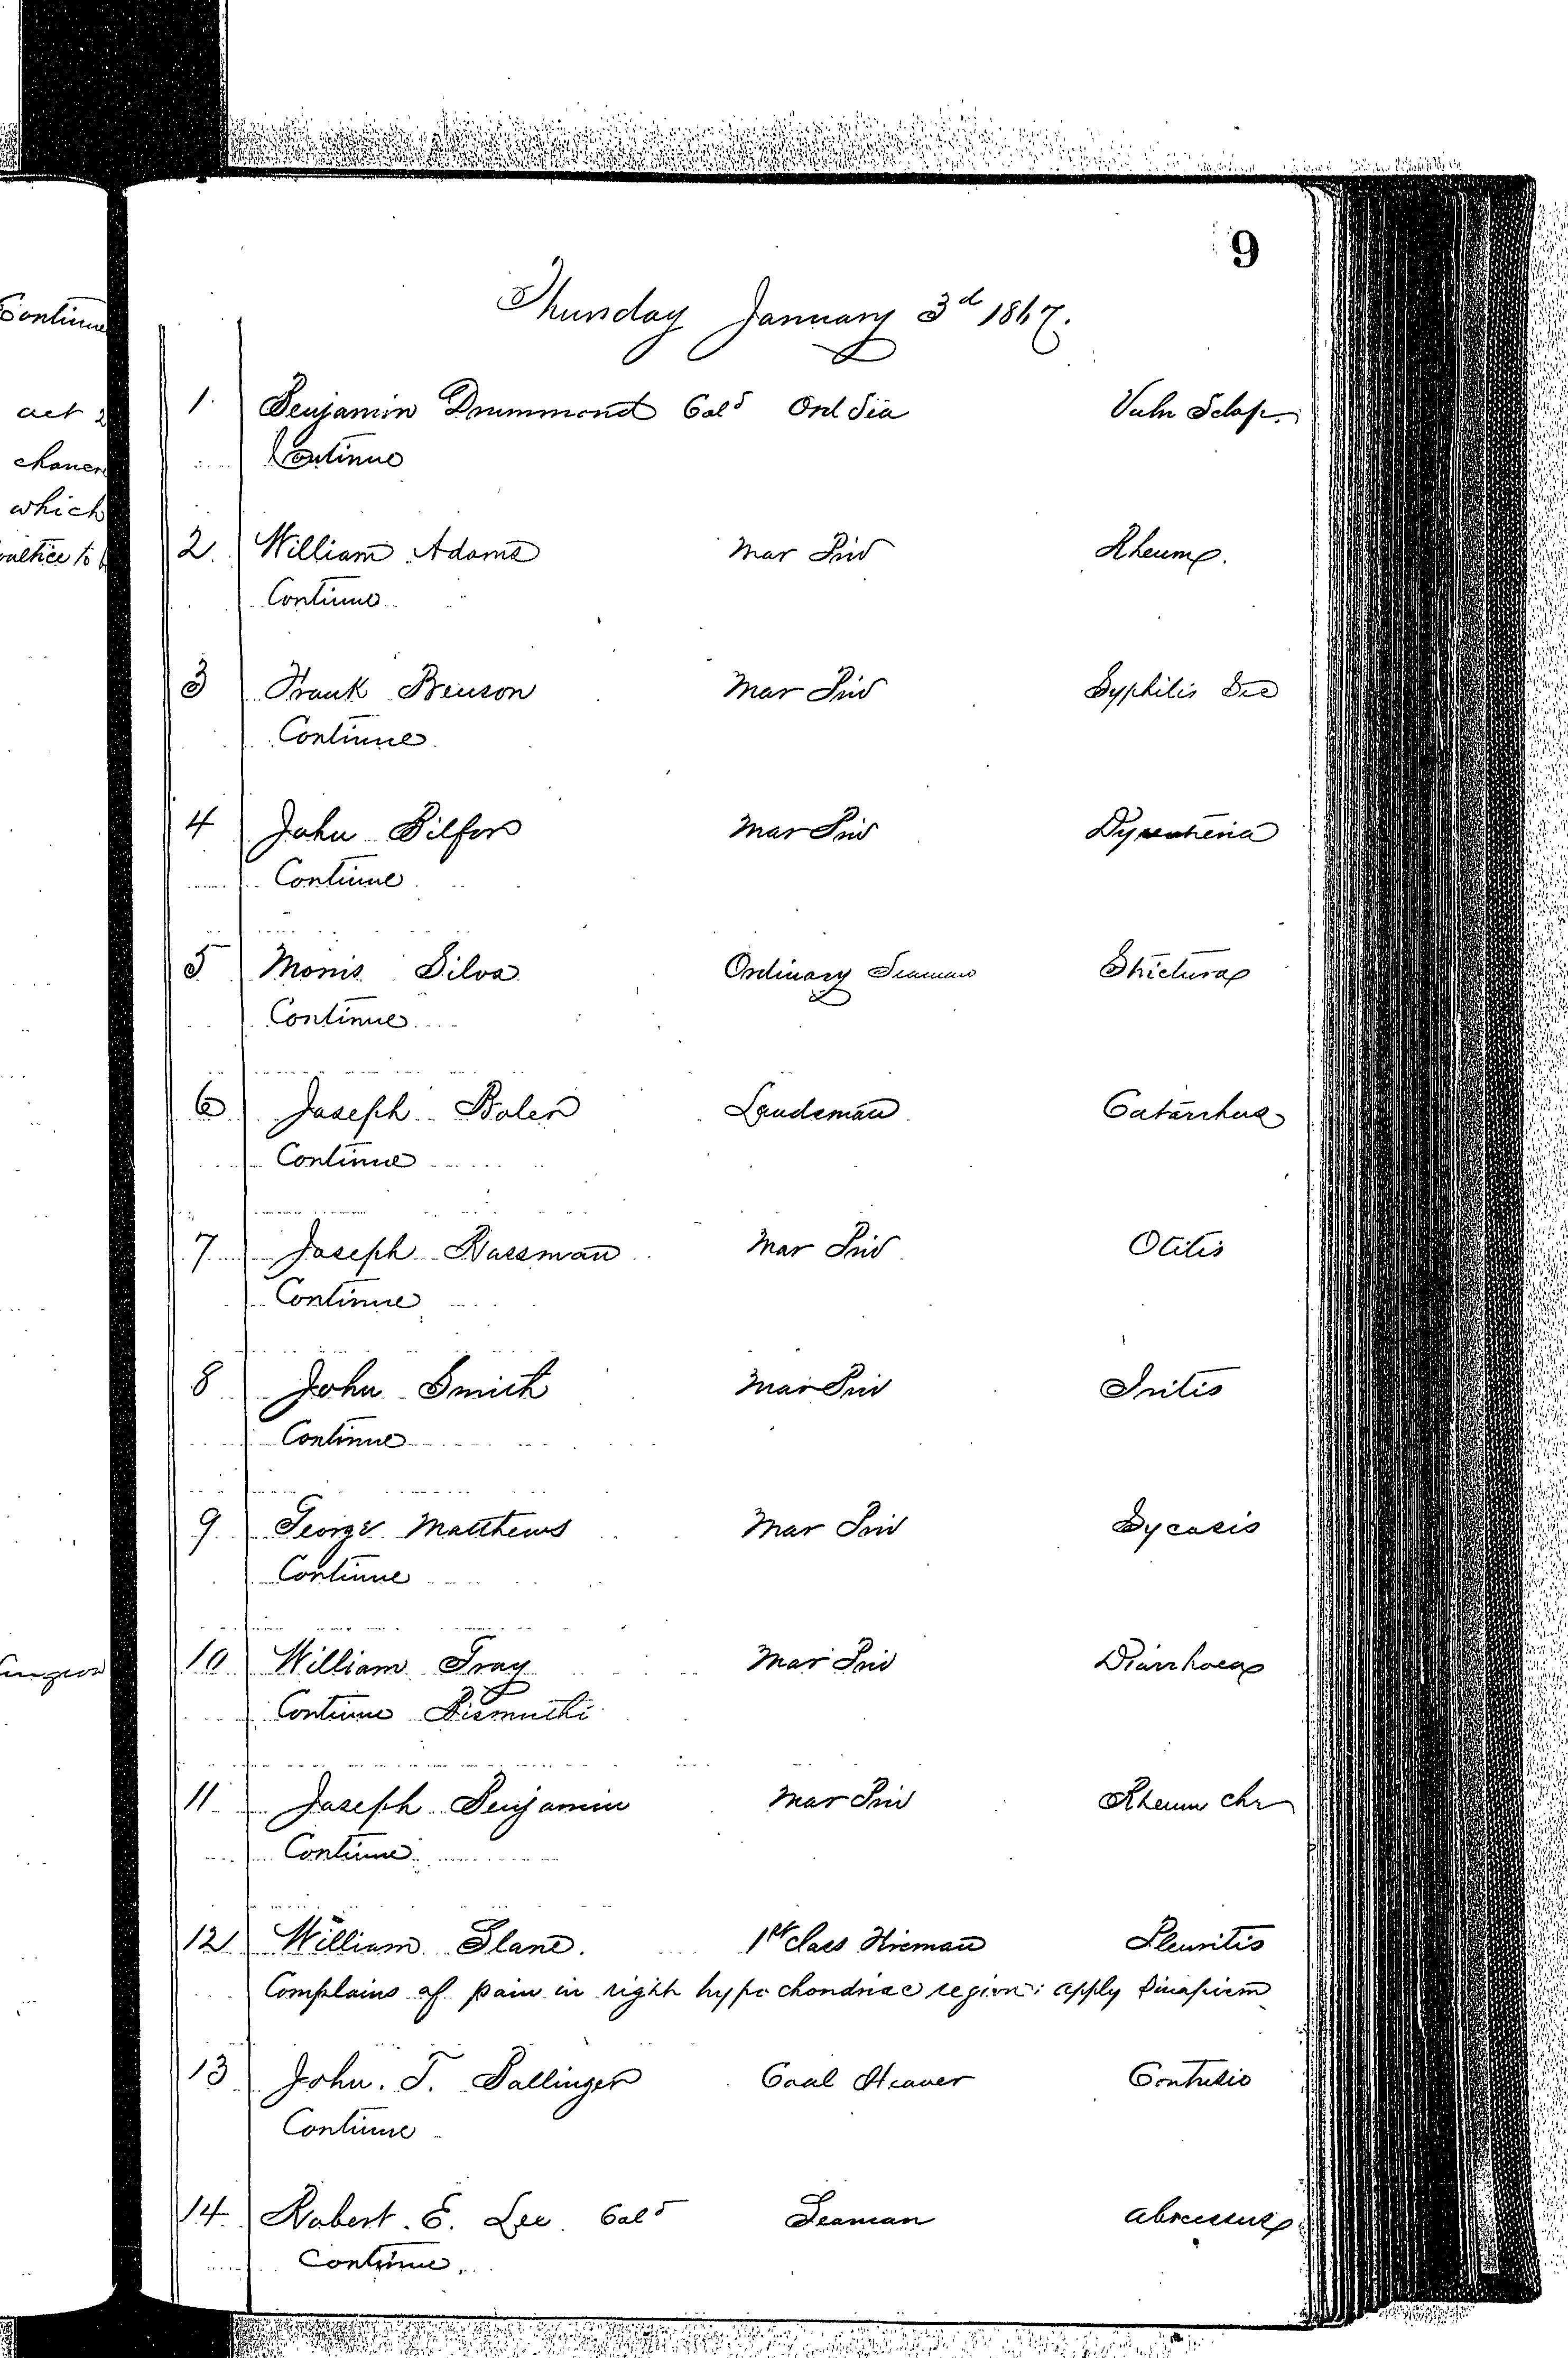 Continue
act 2
which
poultice to b
9
Thursday January 3d 1867.
1. Benjamin Drummond Cold Ord Sea Vuln Sclop.
Continue
2. William Adams Mar Priv Rheum.
Continue
3 Frank Benson Mar Priv Syphilis Sec
Continue
4 John Mar Priv Dysenteria
Continue
5 Morris Silva Ordinary Seaman Strictura
Continue
6 Joseph Boler Landsman Catarrhus
Continue
7 Joseph Mar Priv Otitis
Continue
8 John Smith Mar Priv Iritis
Continue
9 George Matthews Mar Priv Sycosis
Continue
10 William Gray Mar Priv Diarrhoea
Continue Bismuthi
11 Joseph Benjamin Mar Priv Rheum chr
Continue
12 William Slane. 1st Class Fireman Pleuritis
Complains of pain in right hypochondriac region: apply Sinapism
13 John. T. Ballinger Coal Heaver Contusio
Continue
14 Robert. E. Lee Cold Seaman Abscessus
Continue.